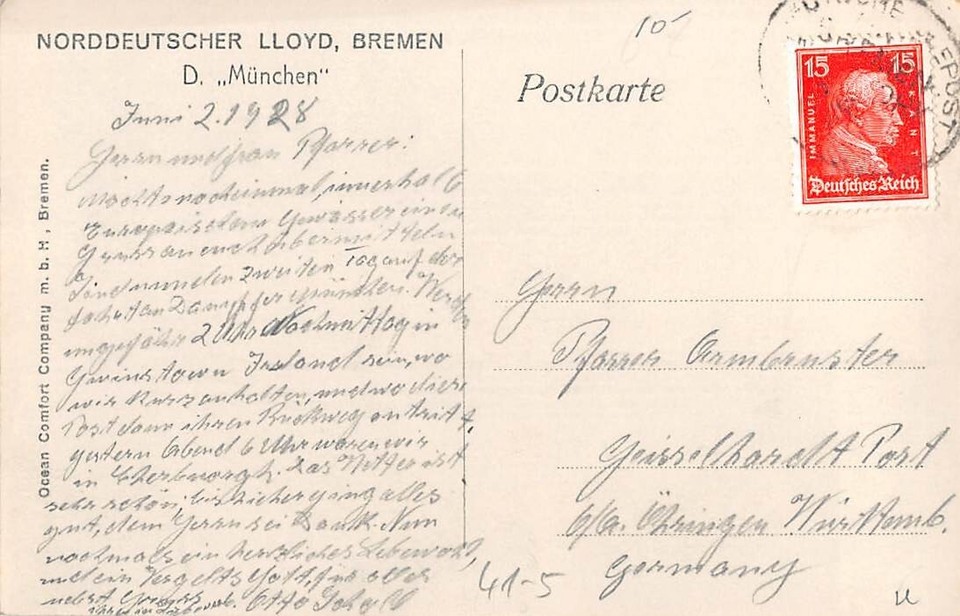 NORDDEUTSCHER LLOYD, BREMEN
D. „München"
Juni 2. 1928
Herrn und Frau Pfarrer:
Möchte noch einmal, innerhalb
Europäischem Gewässer einen
Gruss an euch übermitteln
Sind nun den zweiten Tag auf der
Fahrt an Dampfer München. Werden
ungefähr 2 Uhr Nachmittag in
Irland sein, wo
wir kurz anhalten, und wo diese
Post dann ihren Rückweg antritt,
gestern Abend 6 Uhr waren wir
in Cherbourgh. Das Wetter ist
sehr schön, bis hieher ging alles
gut, dem Herrn sei Dank. Nun
nochmals ein herzliches Lebewohl,
und ein Vergelts Gott, für alles
nebst Gruss
Otto
Ocean Comfort Company m. b. H., Bremen.
Postkarte
10
15 15
IMMANUEL KANT
Deutsches Reich
Herrn
Pfarrer Armbruster
Geisselhardt Post
b/a. Öhringen Württemb.
Germany
41-5